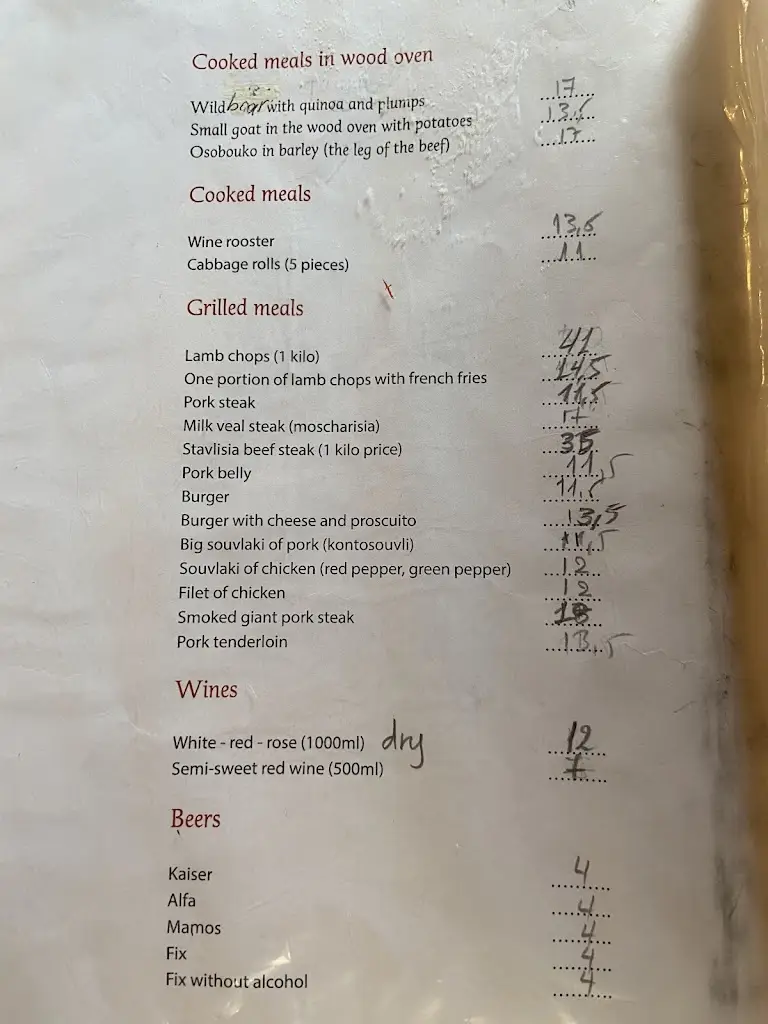 Cooked meals in wood oven
Wild boar with quinoa and plumps ....17....
Small goat in the wood oven with potatoes ....13,5....
Osobouko in barley (the leg of the beef) ....17....
Cooked meals
Wine rooster ....13,5....
Cabbage rolls (5 pieces) ....11....
Grilled meals
Lamb chops (1 kilo) ....41....
One portion of lamb chops with french fries ....14,5....
Pork steak ....11,5....
Milk veal steak (moscharisia) ....17....
Stavlisia beef steak (1 kilo price) ....35....
Pork belly ....11,5
Burger ....11,5....
Burger with cheese and proscuito ....13,5
Big souvlaki of pork (kontosouvli) ....11,5
Souvlaki of chicken (red pepper, green pepper) ....12....
Filet of chicken ....12....
Smoked giant pork steak
Pork tenderloin ....13,5
Wines
White - red - rose (1000ml) dry ....12....
Semi-sweet red wine (500ml) ....7....
Beers
Kaiser ....4....
Alfa ....4....
Mamos ....4....
Fix ....4....
Fix without alcohol ....4....